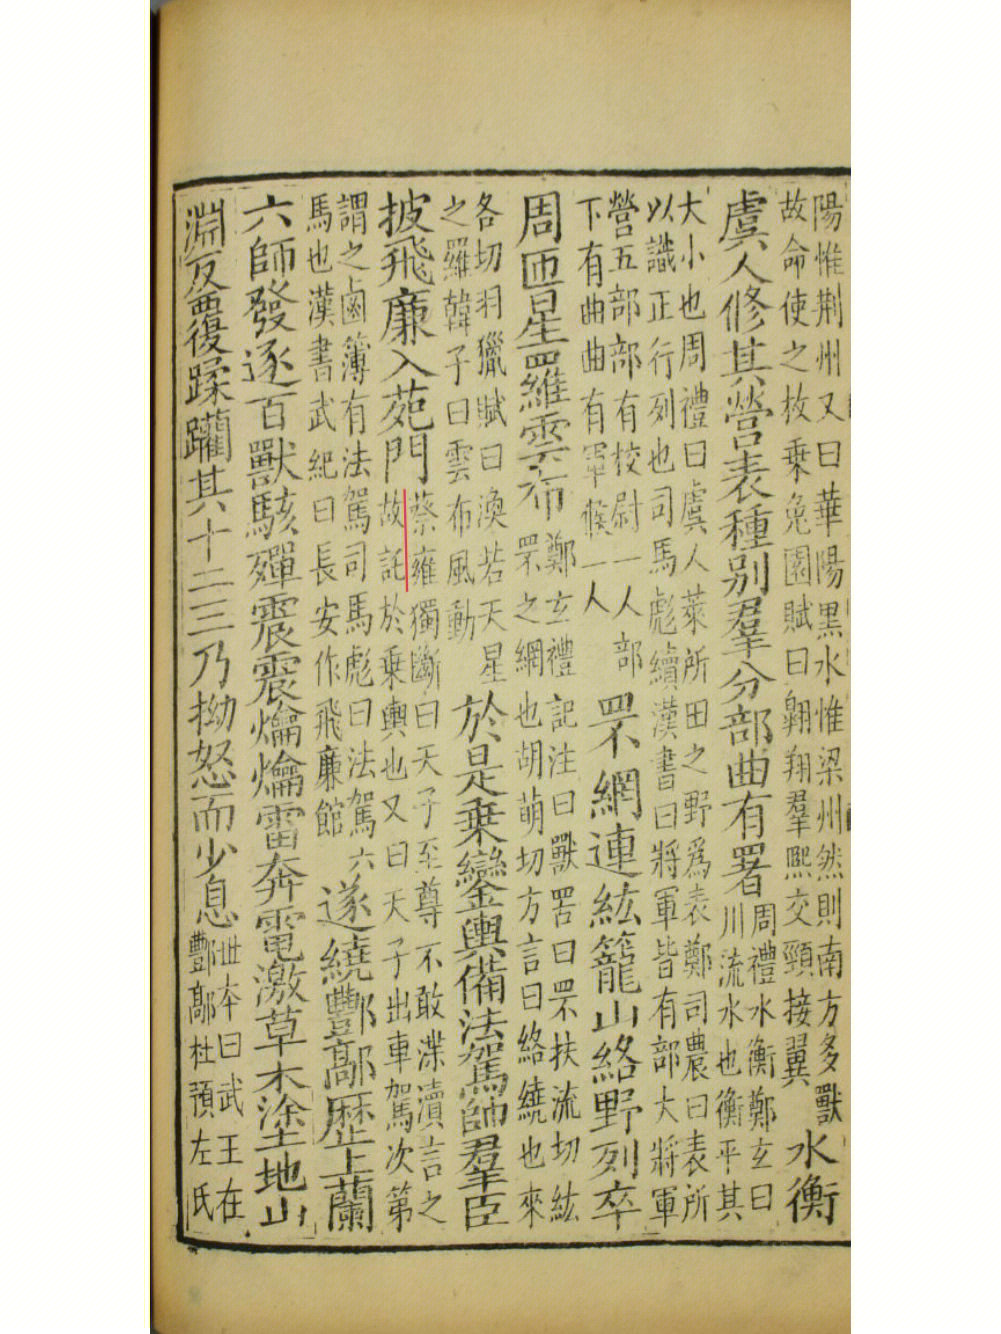 陽惟荆州又曰華陽黒水惟梁州然則南方多獸
故命使之枚乗兔園賦曰翺翔羣熙交頸接翼
水衡
虞人修其營表種别羣分部曲有署
周禮水衡鄭玄曰
川流水也衡平其
大小也周禮曰虞人萊所田之野爲表鄭司農曰表所
以識正行列也司馬彪續漢書曰將軍皆有部大將軍
營五部部有校尉一人部
下有曲曲有軍候一人
罘網連紘籠山絡野列卒
周匝星羅雲布
鄭玄禮記注曰獸罟曰罘扶流切紘
罘之網也胡萌切方言曰絡繞也來
各切羽獵賦曰渙若天星
之羅韓子曰雲布風動
於是乗鑾輿備法駕帥羣臣
披飛廉入苑門
蔡雍獨斷曰天子至尊不敢渫瀆言之
故託於乗輿也又曰天子出車駕次第
謂之鹵簿有法駕司馬彪曰法駕六
馬也漢書武紀曰長安作飛廉館
遂繞酆鄗歷上蘭
六師發逐百獸駭殫震震爚爚雷奔電激草木塗地山
淵反覆蹂躪其十二三乃拗怒而少息
丗本曰武王在
酆鄗杜預左氏